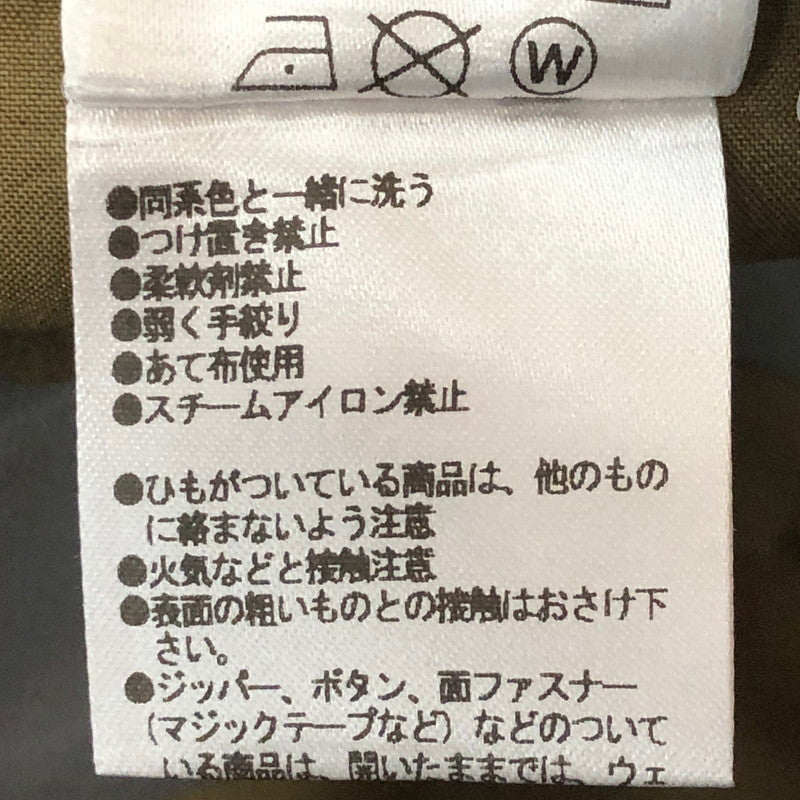 W
●同系色と一緒に洗う
●つけ置き禁止
●柔軟剤禁止
●弱く手絞り
●あて布使用
●スチームアイロン禁止
●ひもがついている商品は、他のもの
に絡まないよう注意
●火気などと接触注意
●表面の粗いものとの接触はおさけ下
さい。
●ジッパー、ボタン、面ファスナー
(マジックテープなど)などのついて
いる商品は、開いたままでは、ウェ